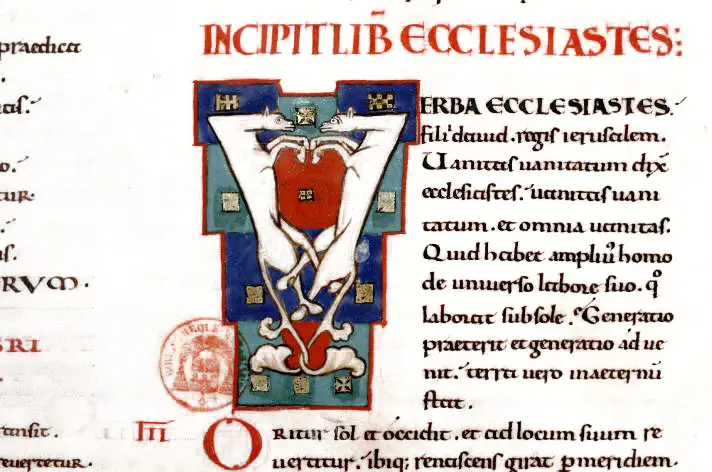 praedica
RVM.
ransit.
euertetur.
INCIPIT LIB̅ ECCLESIASTES:
VERBA ECCLESIASTES.
filii dauid. regis ierusalem.
Uanitas uanitatum dix̅
ecclesiastes. uanitas uani
tatum. et omnia uanitas.
Quid habet ampliu̅ homo
de uniuerso labore suo. qo̅
laborat subsole. Generatio
praeterit et generatio adue
nit. terra uero inaeternu̅
stat.
III ORitur sol et occidit. et ad locum suum re
uertitur. ibiq; renascens girat p meridiem.